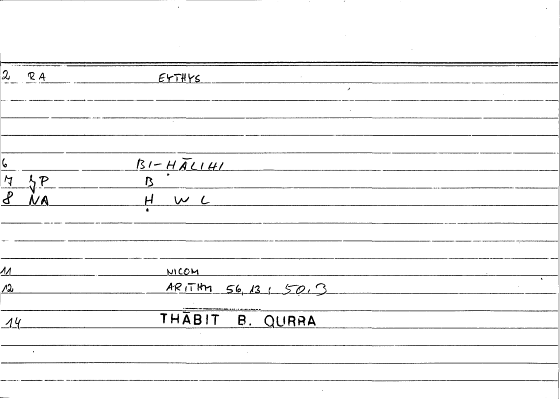 2 RA EYTHYS
6 BI-ḤĀLIHI
7 B
8 NA Ḥ W L
11 NICOM
12 ARITHM 56,13 ; 50.3
14 THĀBIT B. QURRA